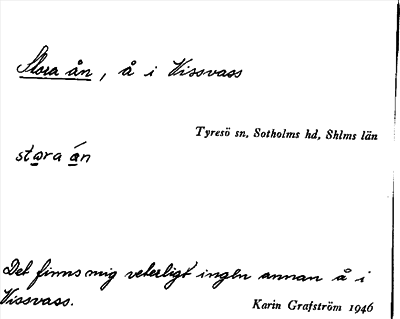 Stora ån, å i Vissvass
Tyresö sn, Sotholms hd, Shlms län
stora án
Det finns mig veterligt ingen annan å i
Vissvass.
Karin Grafström 1946